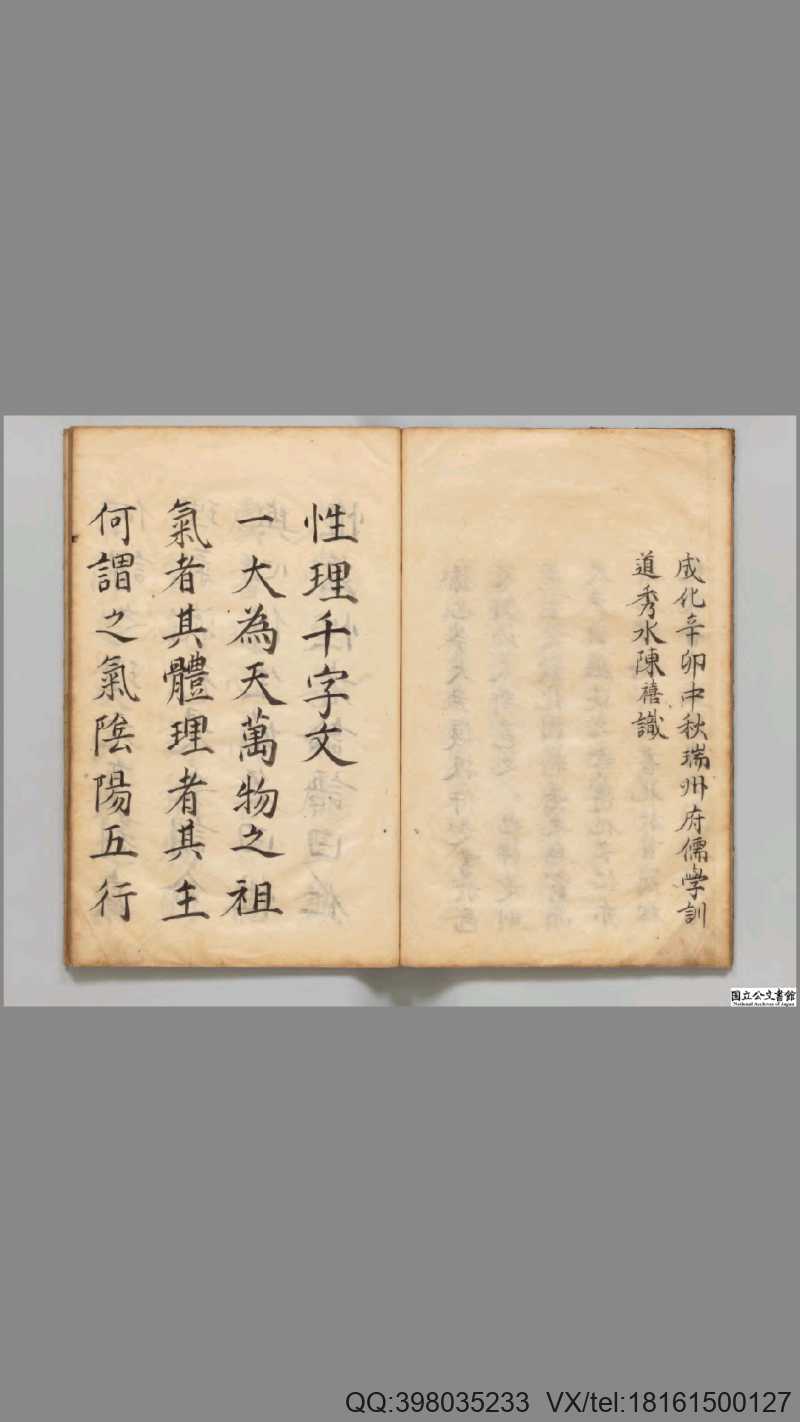 成化辛卯中秋瑞州府儒學訓
道秀水陳禧識
性理千字文
一大為天萬物之祖
氣者其體理者其主
何謂之氣陰陽五行
国立公文書館
National Archives of Japan
QQ:398035233 VX/tel:18161500127